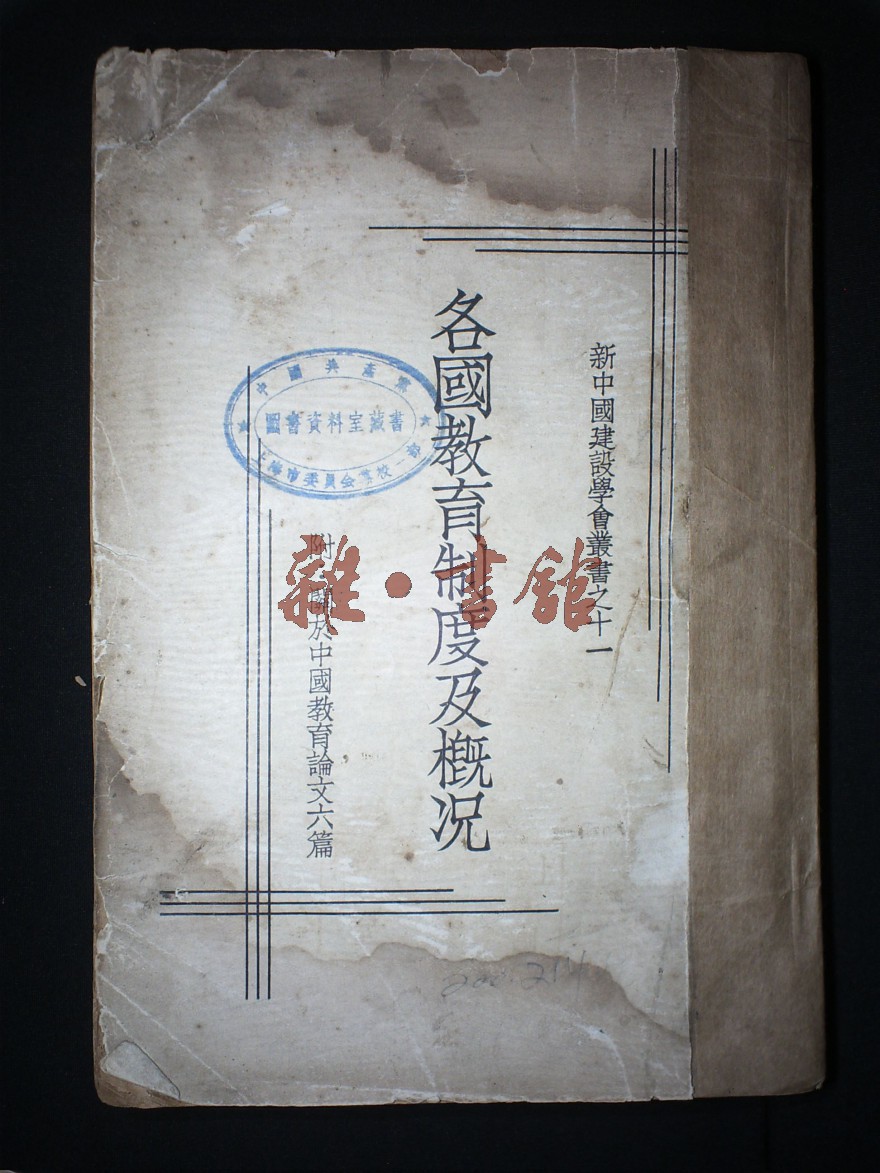 新中國建設學會叢書之十一
各國教育制度及概況
附關於中國教育論文六篇
中國共產黨
圖書資料室藏書
上海市委員会黨校一部
雜·書館
200.214